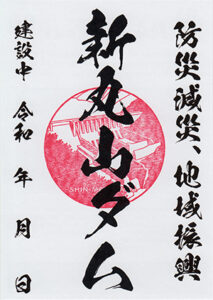 防災減災、地域振興
新丸山ダム
建設中　令和　年　月　日
SHIN-M